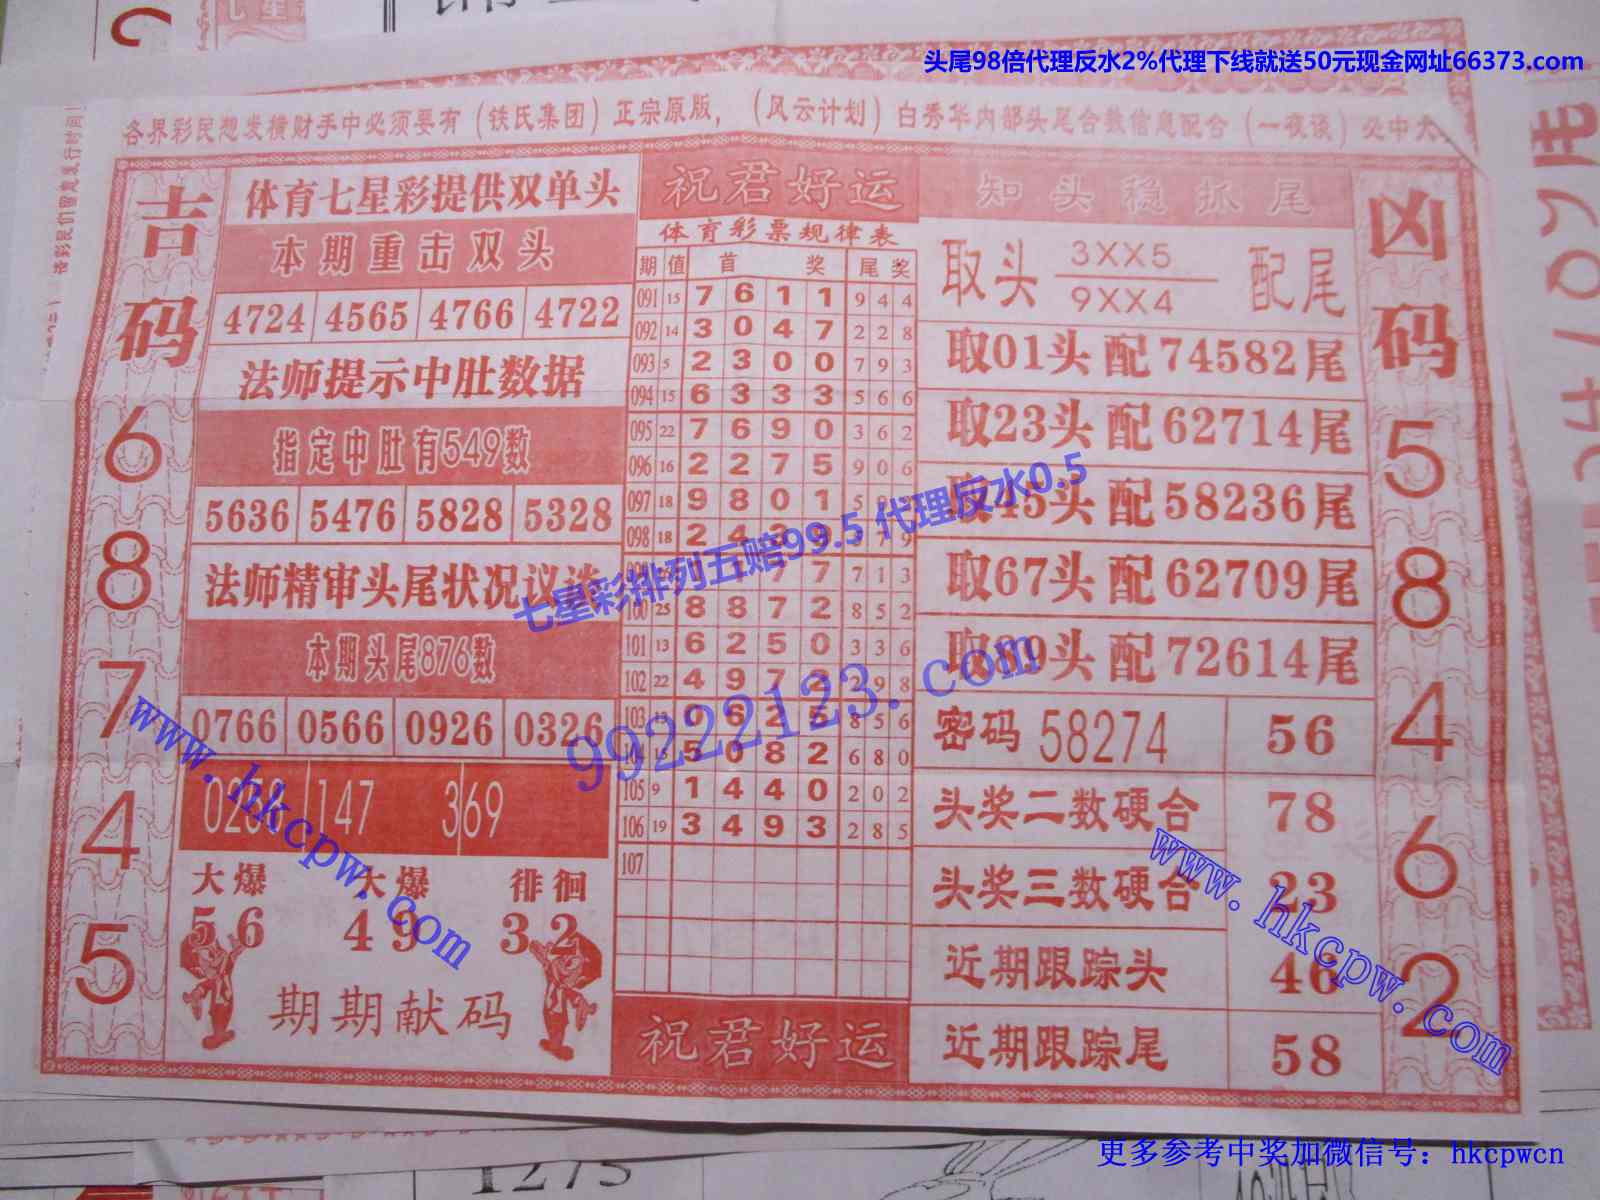 头尾98倍代理反水2%代理下线就送50元现金网址66373.com
各界彩民想发横财手中必须要有（铁氏集团）正宗原版，（风云计划）白秀华内部头尾合数信息配合（一夜谈）必中大
吉码
6
8
7
4
5
体育七星彩提供双单头
本期重击双头
4724 4565 4766 4722
法师提示中肚数据
指定中肚有549数
5636 5476 5828 5328
法师精审头尾状况议谈
本期头尾876数
0766 0566 0926 0326
147 369
大爆 大爆 徘徊
56 49 32
期期献码
祝君好运
体育彩票规律表
期 值 首 奖 尾 奖
091 15 7 6 1 1 9 4 4
092 14 3 0 4 7 2 2 8
093 5 2 3 0 0 7 9 3
094 15 6 3 3 3 5 6 6
095 22 7 6 9 0 3 6 2
096 16 2 2 7 5 9 0 6
097 18 9 8 0 1 5
098 18 2 4 3 7 9
7 7 7 1 3
100 25 8 8 7 2 8 5 2
101 13 6 2 5 0 3 3 6
102 22 4 9 7 2 9 8
103 13 0 6 2 5 8 5 6
104 15 5 0 8 2 6 8 0
105 9 1 4 4 0 2 0 2
106 19 3 4 9 3 2 8 5
107
祝君好运
知头稳抓尾
取头 3XX5 配尾
9XX4
取01头配74582尾
取23头配62714尾
取45头配58236尾
取67头配62709尾
取89头配72614尾
密码 58274 56
头奖二数硬合 78
头奖三数硬合 23
近期跟踪头 46
近期跟踪尾 58
凶码
5
8
4
6
2
七星彩排列五赔99.5 代理反水0.5
99222123.com
www.hkcpw.com
www.hkcpw.com
更多参考中奖加微信号：hkcpwcn
1273